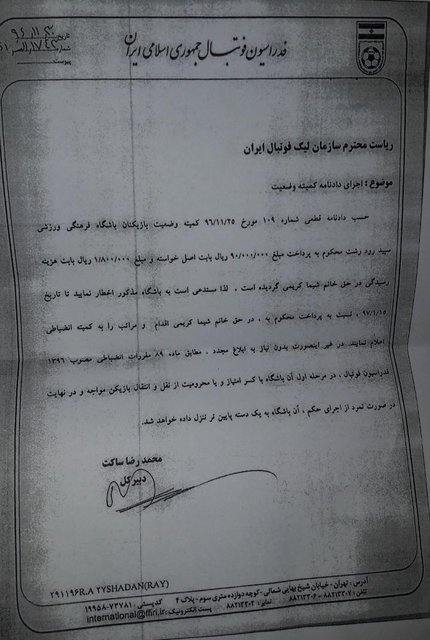 فدراسیون فوتبال جمهوری اسلامی ایران
تاریخ
شماره
پیوست
ریاست محترم سازمان لیگ فوتبال ایران
موضوع : اجرای دادنامه کمیته وضعیت
حسب دادنامه قطعی شماره ۱۰۹ مورخ ۹۶/۱۱/۲۵ کمیته وضعیت بازیکنان باشگاه فرهنگی ورزشی
سپید رود رشت محکوم به پرداخت مبلغ ۹۰/۰۰۰/۰۰۰ ریال بابت اصل خواسته و مبلغ ۱/۸۰۰/۰۰۰ ریال بابت هزینه
رسیدگی در حق خانم شیما کریمی گردیده است ، لذا مستدعی است به باشگاه مذکور اخطار نمایید تا تاریخ
۹۷/۰۱/۱۵ ، نسبت به پرداخت محکوم به ، در حق خانم شیما کریمی اقدام و مراتب را به کمیته انضباطی
اعلام نمایند. در غیر اینصورت بدون نیاز به ابلاغ مجدد ، مطابق ماده ۸۹ مقررات انضباطی مصوب ۱۳۹۶
فدراسیون فوتبال ، در مرحله اول آن باشگاه با کسر امتیاز و یا محرومیت از نقل و انتقال بازیکن مواجه و در نهایت
در صورت تمرد از اجرای حکم ، آن باشگاه به یک دسته پایین تر تنزل داده خواهد شد.
محمد رضا ساکت
دبیر کل
۲۹۱۱۹۶R.A ۲۲YSHADAN(RAY)
آدرس : تهران - خیابان شیخ بهایی شمالی - کوچه دوازده متری سوم - پلاک ۴
تلفن : ۸۸۲۱۳۳۰۷ - ۸۸۲۱۳۳۰۶ نمابر: ۸۸۲۱۳۳۰۲ کدپستی: ۷۳۷۸۱-۱۹۹۵۸
پست الکترونیک: international@ffiri.ir